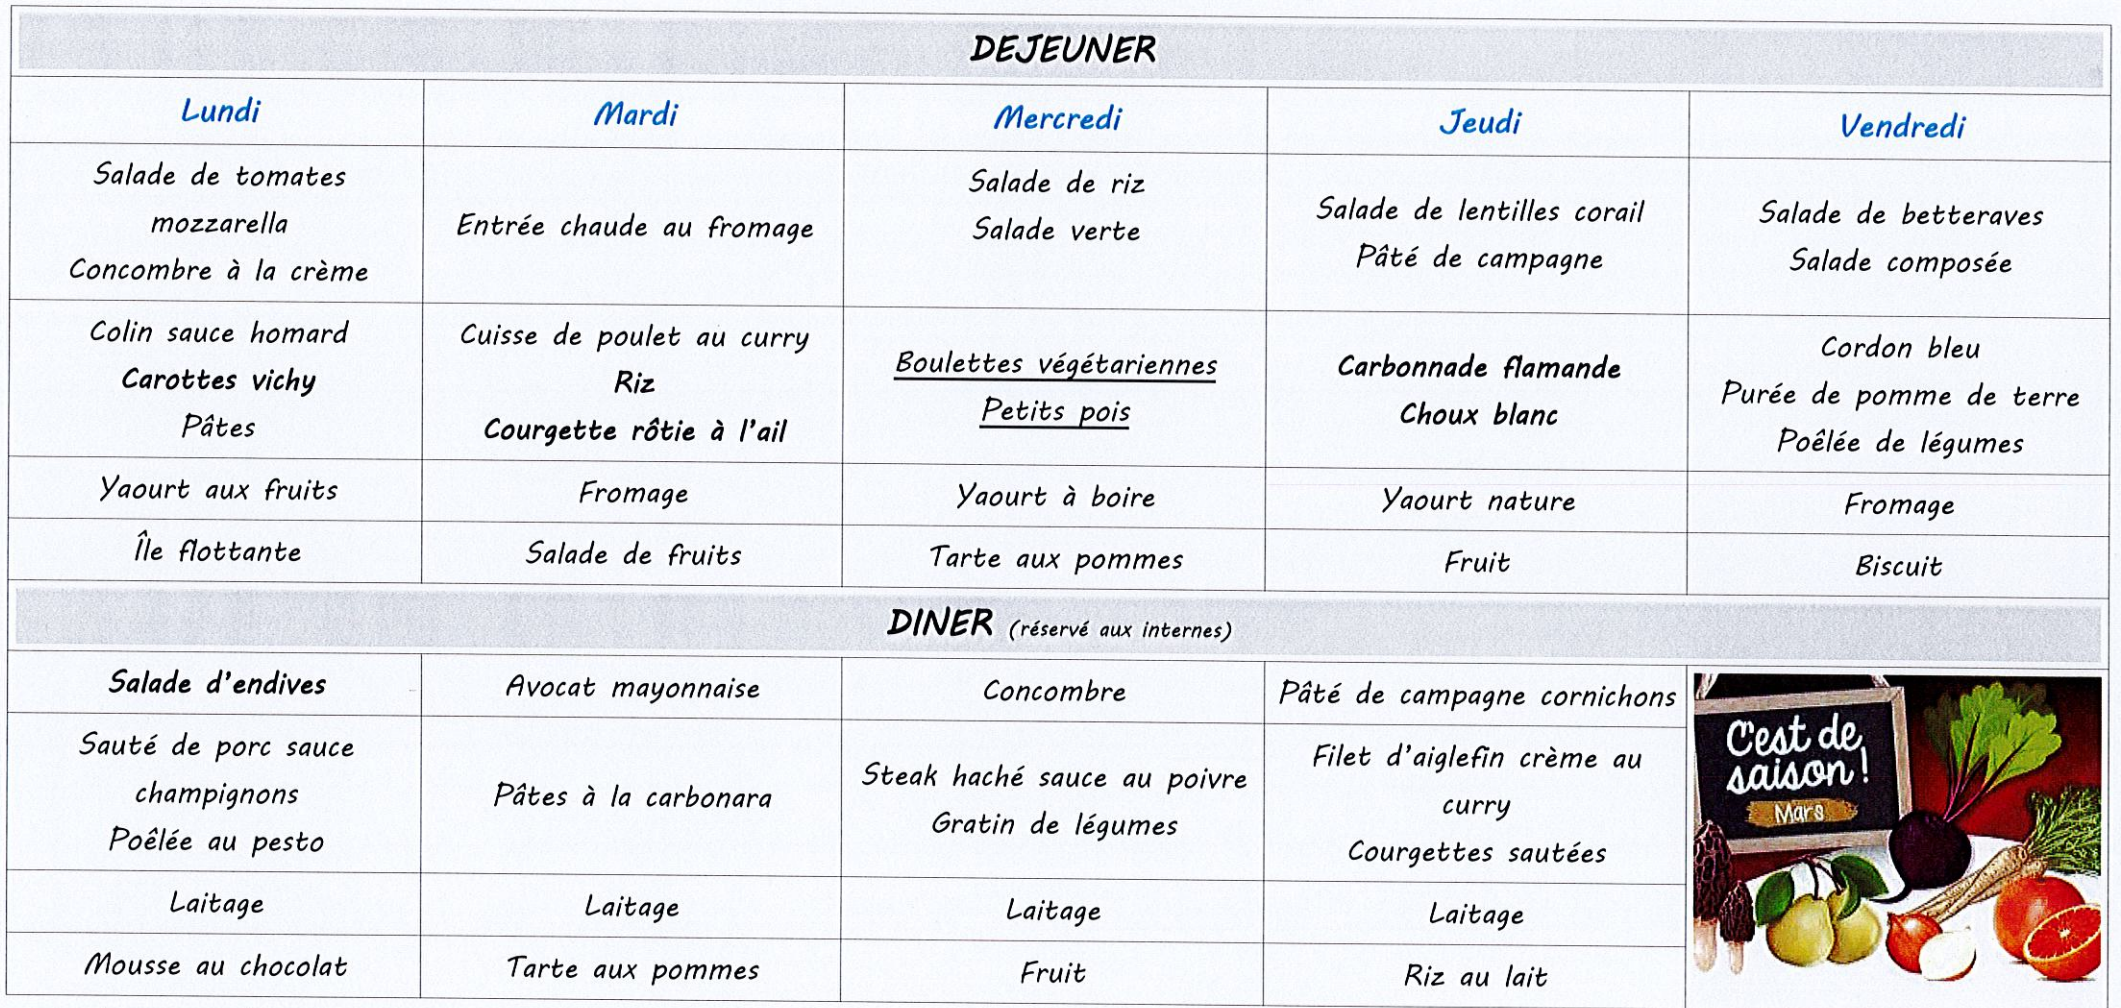 DEJEUNER
Lundi
Mardi
Mercredi
Jeudi
Vendredi
Salade de tomates
mozzarella
Concombre à la crème
Entrée chaude au fromage
Salade de riz
Salade verte
Salade de lentilles corail
Pâté de campagne
Salade de betteraves
Salade composée
Colin sauce homard
Carottes vichy
Pâtes
Cuisse de poulet au curry
Riz
Courgette rôtie à l'ail
Boulettes végétariennes
Petits pois
Carbonnade flamande
Choux blanc
Cordon bleu
Purée de pomme de terre
Poêlée de légumes
Yaourt aux fruits
Fromage
Yaourt à boire
Yaourt nature
Fromage
Île flottante
Salade de fruits
Tarte aux pommes
Fruit
Biscuit
DINER (réservé aux internes)
Salade d'endives
Avocat mayonnaise
Concombre
Pâté de campagne cornichons
Sauté de porc sauce
champignons
Poêlée au pesto
Pâtes à la carbonara
Steak haché sauce au poivre
Gratin de légumes
Filet d'aiglefin crème au
curry
Courgettes sautées
Laitage
Laitage
Laitage
Laitage
Mousse au chocolat
Tarte aux pommes
Fruit
Riz au lait
C'est de
saison !
Mars